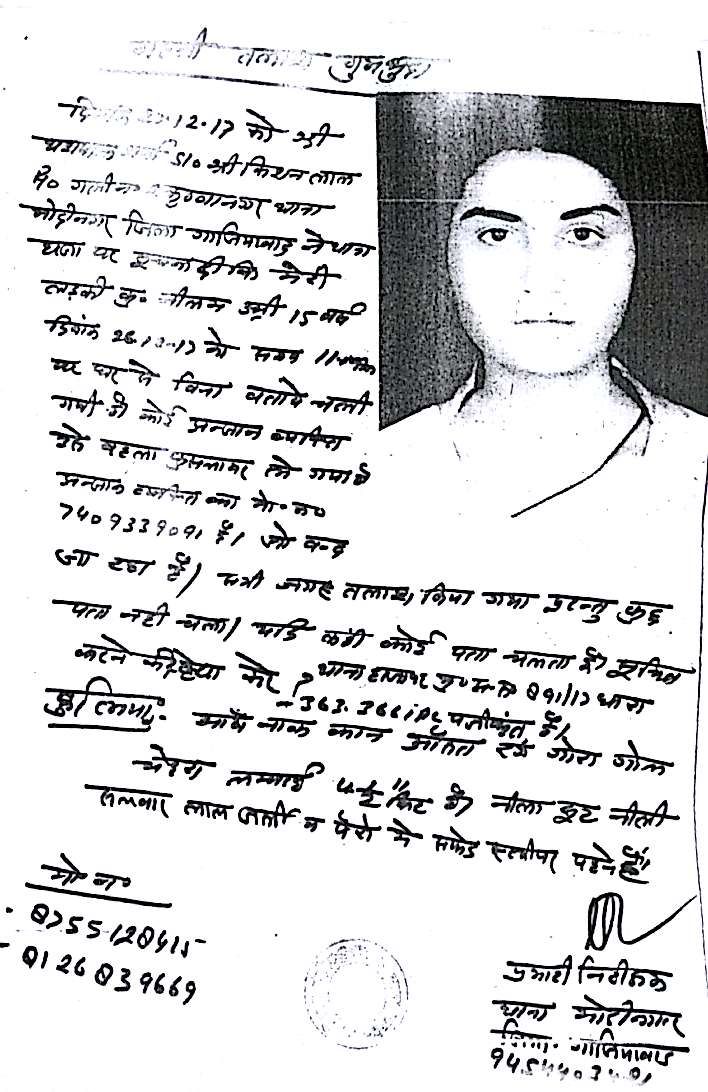 तलाश गुमशुदा
दिनांक 12.17 को श्री
S/o श्री किशन लाल
थाना
मोदीनगर जिला गाजियाबाद ने थाना
पर सूचना दी कि मेरी
लड़की कु० नीलम उम्र 15 वर्ष
दिनांक 26.12.17 को समय 11
पर घर से बिना बताये चली
गयी है कोई अन्जान व्यक्ति
इसे बहला फुसलाकर ले गया है
अन्जान व्यक्ति का मो० न०
7409339091 है। जो बन्द
जा रहा है। सभी जगह तलाश किया गया परन्तु कुछ
पता नहीं चला। यदि कहीं कोई पता चलता है सूचित
करने की कृपया करें थाना मु०अ०न० 891/17 धारा
363.366 ipc पंजीकृत है।
हुलिया: आँख नाक कान औसत रंग गोरा गोल
चेहरा लम्बाई फिट है। नीला सूट नीली
सलवार लाल जर्सी व पैरो मे सफेद स्लीपर पहने है।
मो० न०
8755128415
8126839669
प्रभारी निरीक्षक
थाना मोदीनगर
जिला- गाजियाबाद